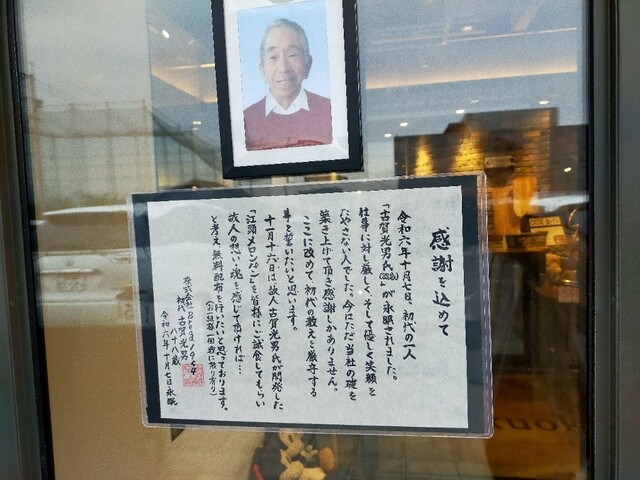 感謝を込めて
令和六年十月七日、初代の一人
「古賀光男氏(88歳)」が永眠されました。
仕事に対し厳しく、そして優しく笑顔を
たやさない人でした。今はただ当社の礎を
築き上げて頂き感謝しかありません。
ここに改めて初代の教えを厳守する
事を誓いたいと思います。
十一月十六日は故人古賀光男氏が開発した
「江頭メロンパン」を皆様にご試食してもらい
故人の想い・魂を感じて頂ければ…
と考え無料配布を行いたいと思っております。
(お一組様一個 数に限り有り)
株式会社Bread1954
初代 古賀光男
八十八歳
令和六年十月七日永眠
kuok